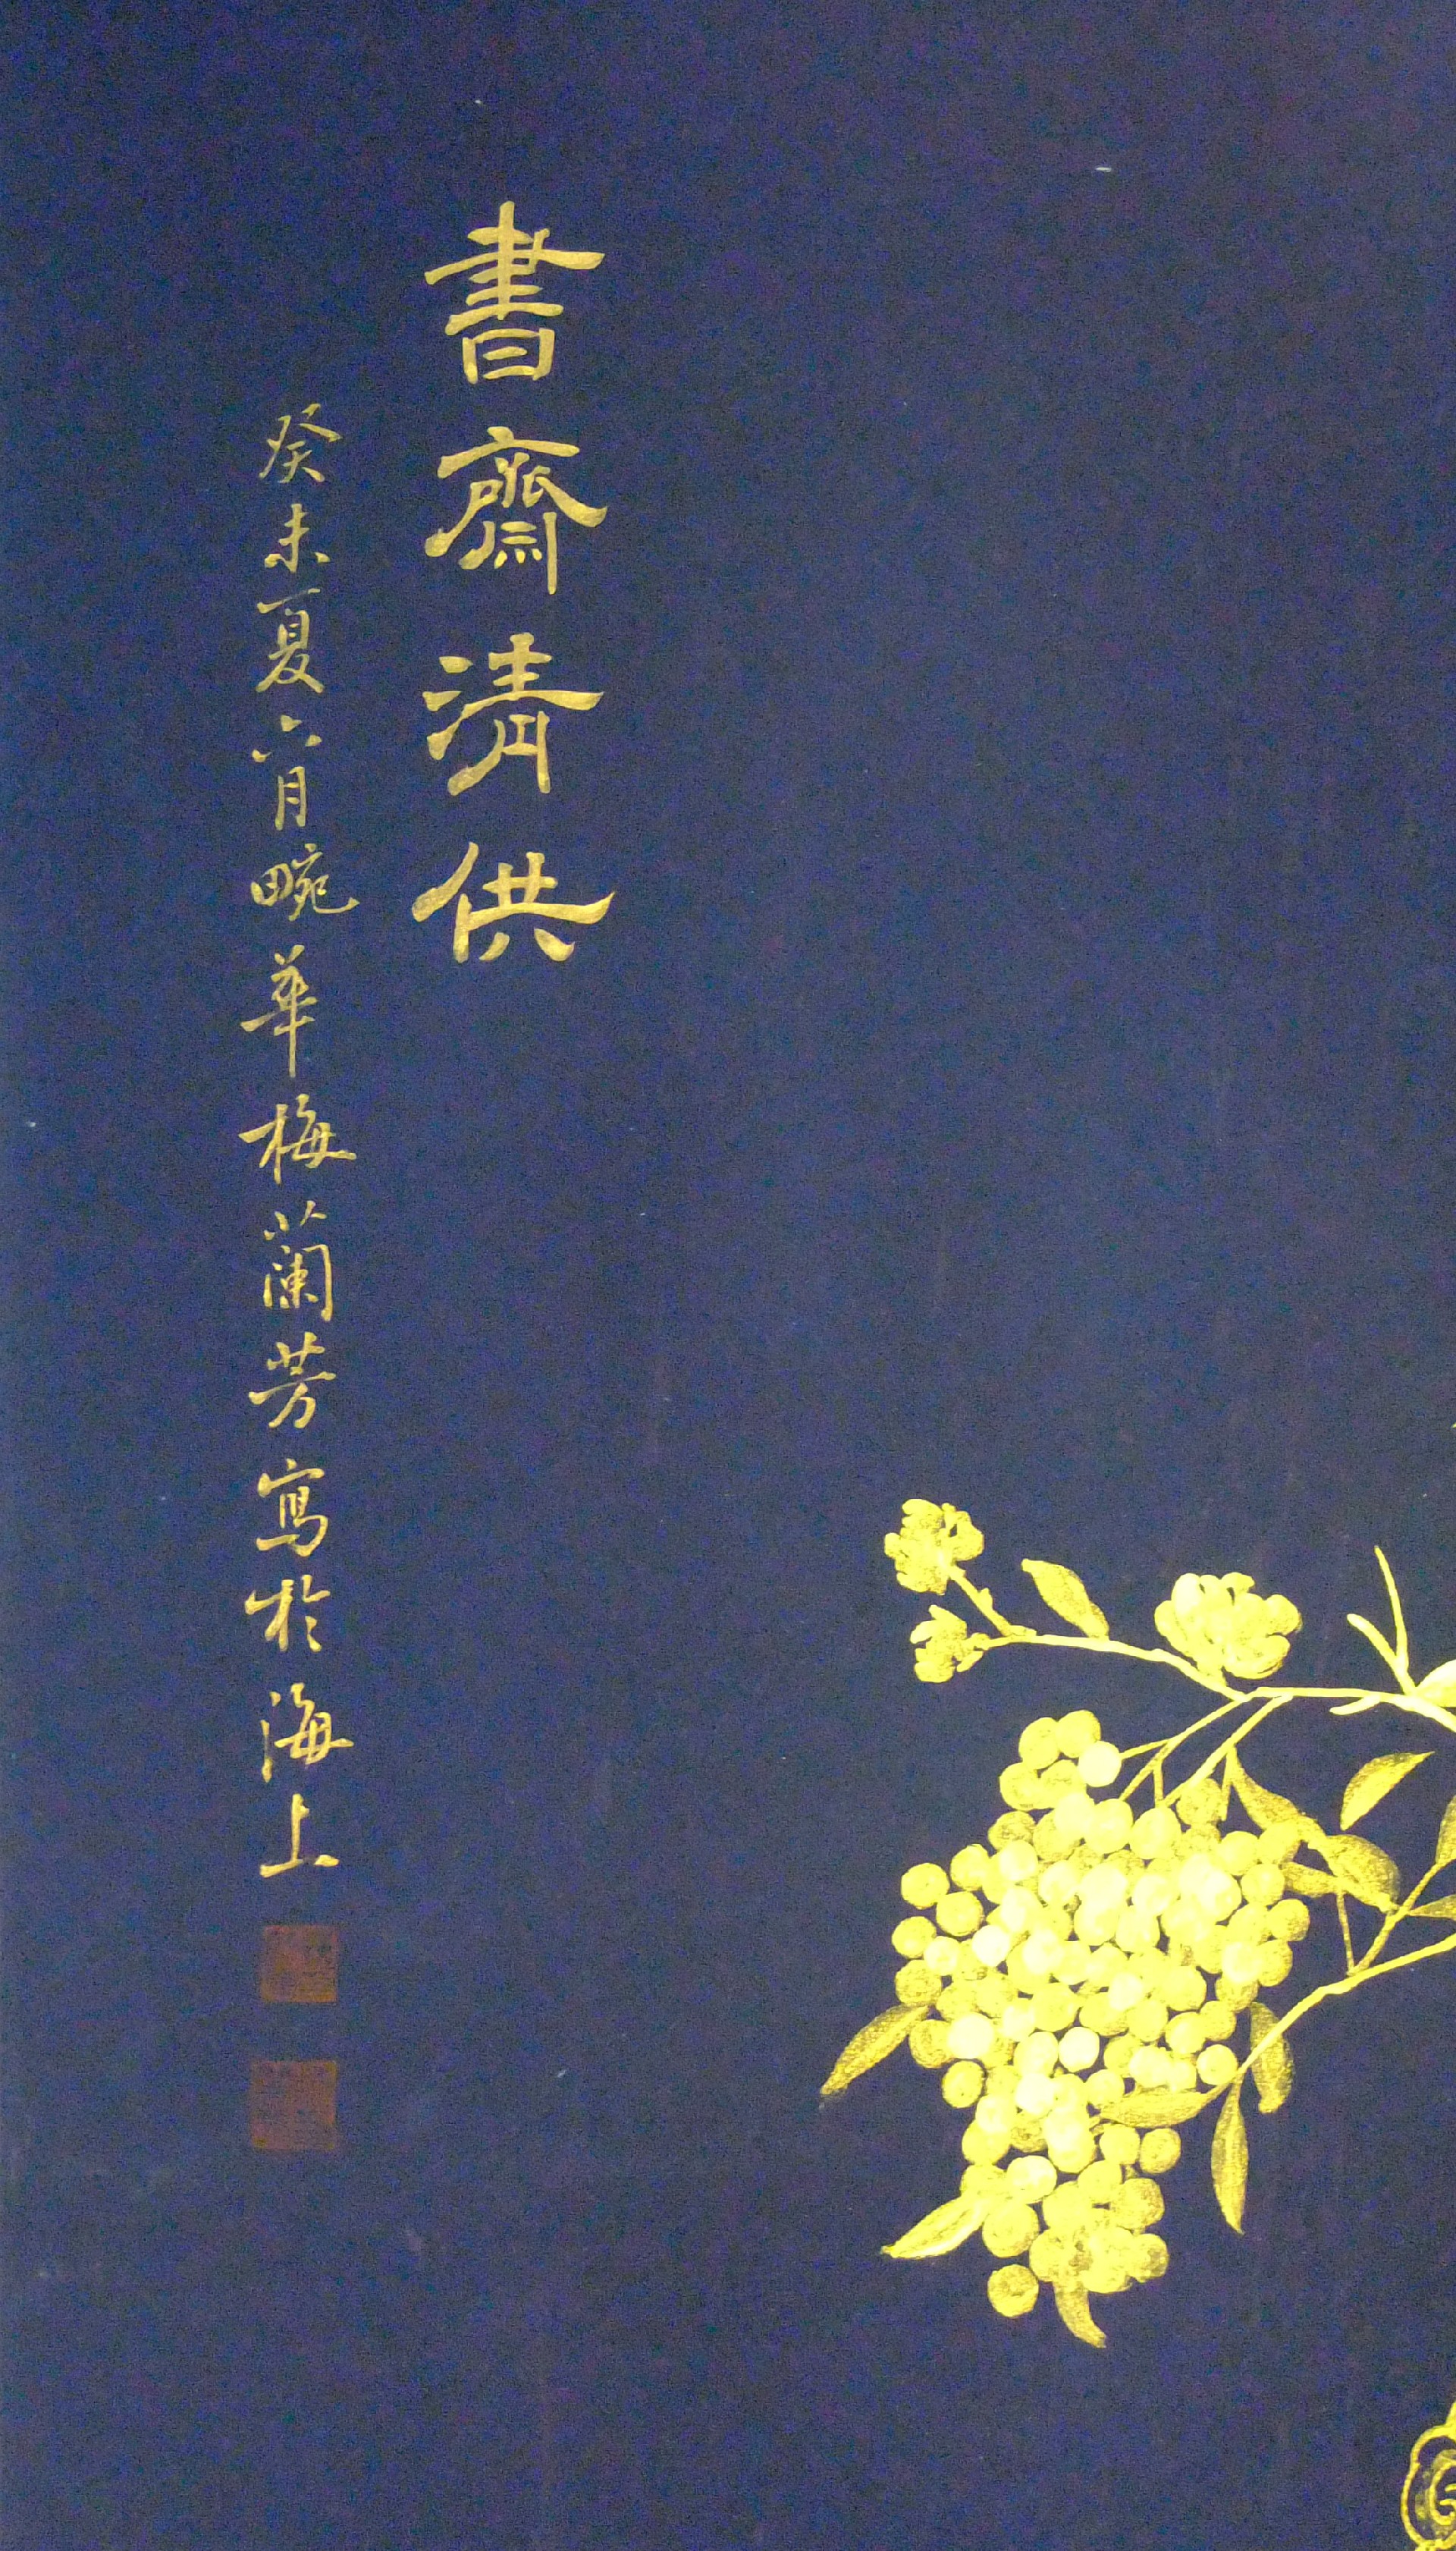 書齋清供
癸未夏六月畹華梅蘭芳寫於海上